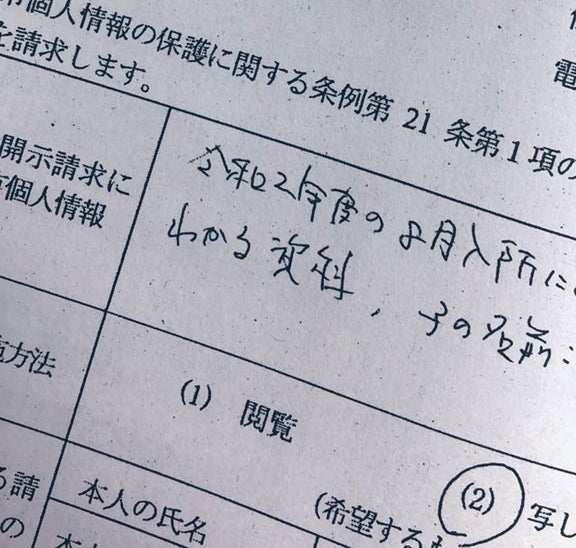 個人情報の保護に関する条例第 21 条第1項の
を請求します。
電
開示請求に
個人情報
令和2年度の4月入所に
わかる資料、子の名前:
方法
(1) 閲覧
(2) 写し
(希望する
る請
の
本人の氏名
本人